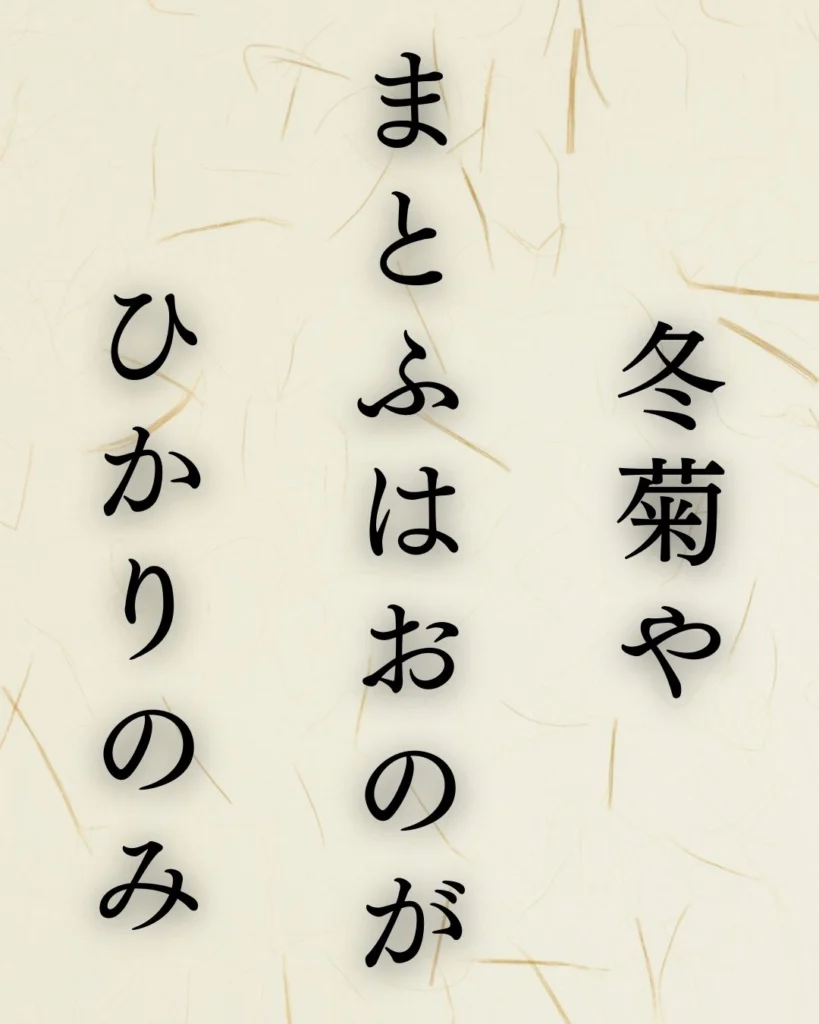 冬菊や
まとふはおのが
ひかりのみ